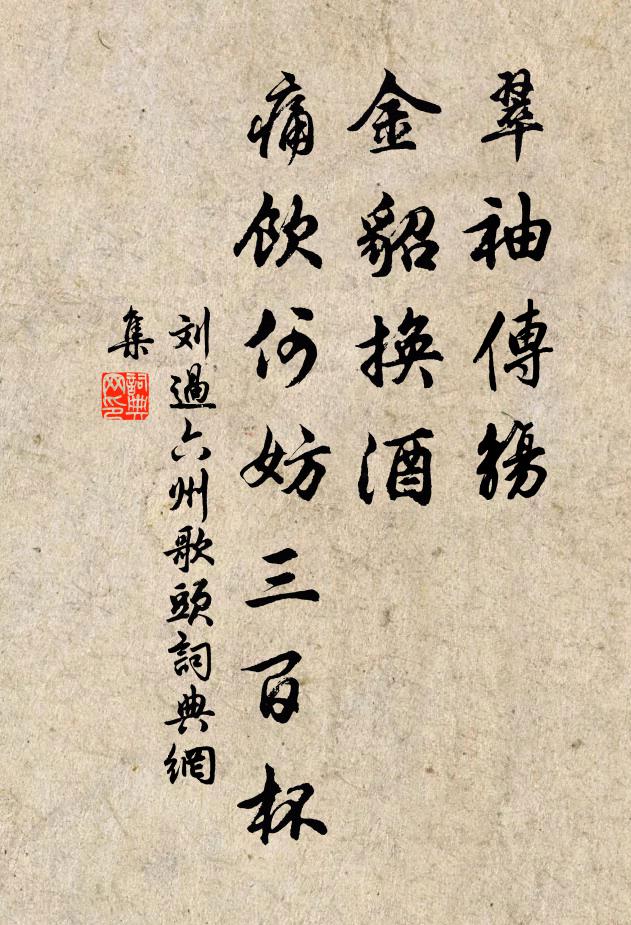 翠袖傳觴
金貂換酒
痛飲何妨三百杯
刘過六州歌頭詞典網
集
詞典
网印